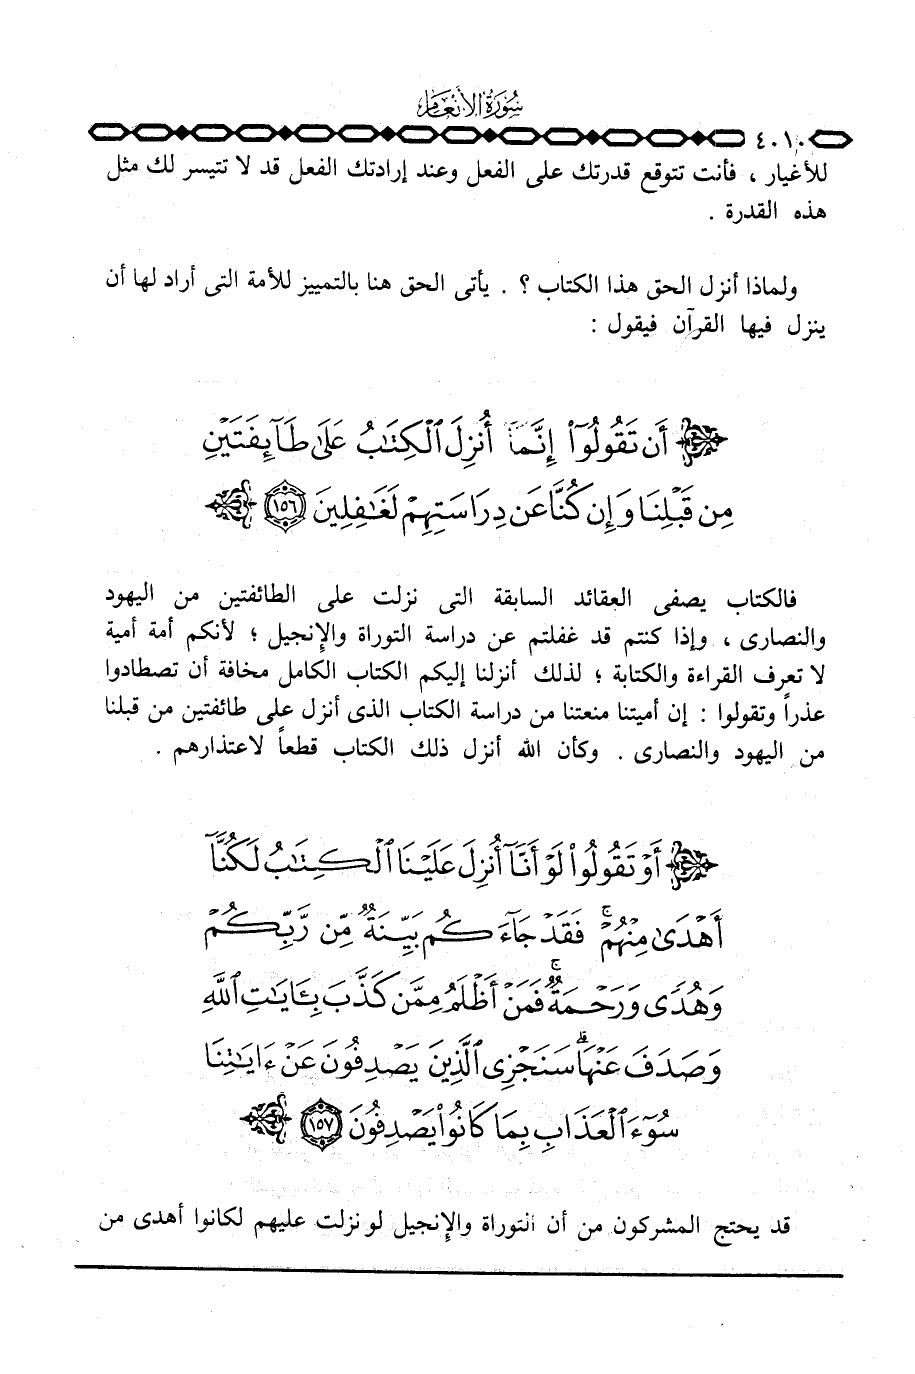 سُورَةُ الأَنْعَام
٤٠١٠
للأغيار ، فأنت تتوقع قدرتك على الفعل وعند إرادتك الفعل قد لا تتيسر لك مثل
هذه القدرة .
ولماذا أنزل الحق هذا الكتاب ؟ . يأتى الحق هنا بالتمييز للأمة التى أراد لها أن
ينزل فيها القرآن فيقول :
أَن تَقُولُوٓا۟ إِنَّمَآ أُنزِلَ ٱلْكِتَٰبُ عَلَىٰ طَآئِفَتَيْنِ
مِن قَبْلِنَا وَإِن كُنَّا عَن دِرَاسَتِهِمْ لَغَٰفِلِينَ ١٥٦
فالكتاب يصفى العقائد السابقة التى نزلت على الطائفتين من اليهود
والنصارى ، وإذا كنتم قد غفلتم عن دراسة التوراة والإنجيل ؛ لأنكم أمة أمية
لا تعرف القراءة والكتابة ؛ لذلك أنزلنا إليكم الكتاب الكامل مخافة أن تصطادوا
عذراً وتقولوا : إن أميتنا منعتنا من دراسة الكتاب الذى أنزل على طائفتين من قبلنا
من اليهود والنصارى . وكأن الله أنزل ذلك الكتاب قطعاً لاعتذارهم .
أَوْ تَقُولُوا۟ لَوْ أَنَّآ أُنزِلَ عَلَيْنَا ٱلْكِتَٰبُ لَكُنَّآ
أَهْدَىٰ مِنْهُمْ ۚ فَقَدْ جَآءَكُم بَيِّنَةٌ مِّن رَّبِّكُمْ
وَهُدًى وَرَحْمَةٌ ۚ فَمَنْ أَظْلَمُ مِمَّن كَذَّبَ بِـَٔايَٰتِ ٱللَّهِ
وَصَدَفَ عَنْهَا ۗ سَنَجْزِى ٱلَّذِينَ يَصْدِفُونَ عَنْ ءَايَٰتِنَا
سُوٓءَ ٱلْعَذَابِ بِمَا كَانُوا۟ يَصْدِفُونَ ١٥٧
قد يحتج المشركون من أن التوراة والإنجيل لو نزلت عليهم لكانوا أهدى من